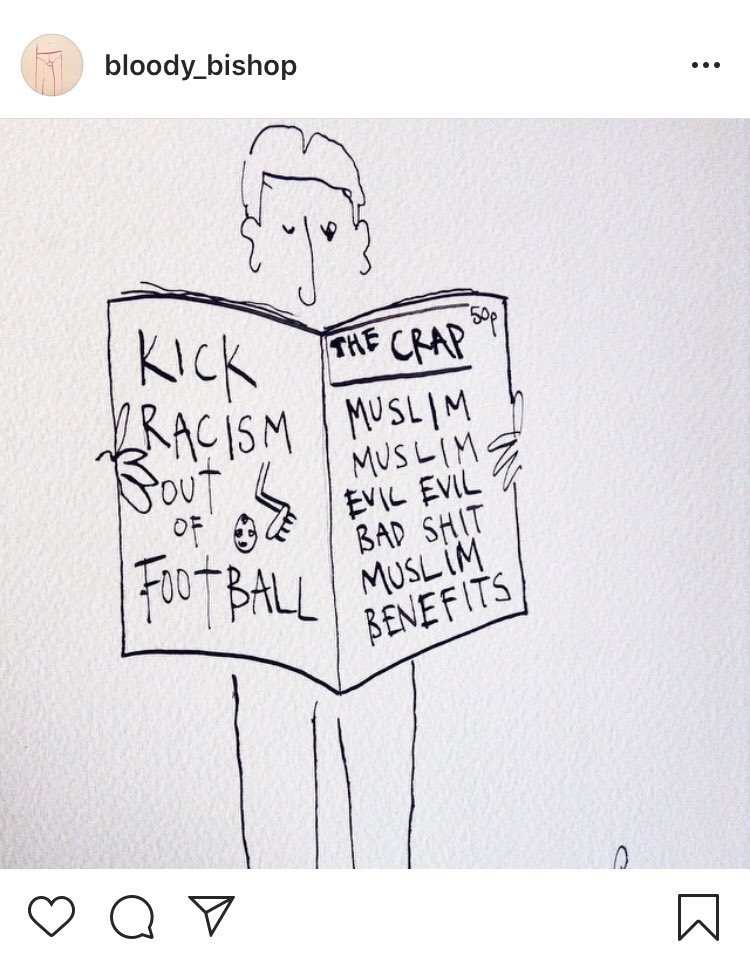 bloody_bishop
KICK
RACISM
OUT
OF
FOOTBALL
THE CRAP
50p
MUSLIM
MUSLIM
EVIL EVIL
BAD SHIT
MUSLIM
BENEFITS